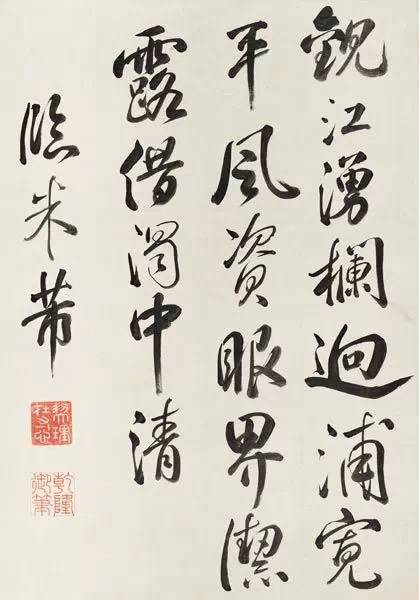 觀江湧欄迥浦寬
平風資眼界潔
露借胸中清
臨米芾
乾隆御筆